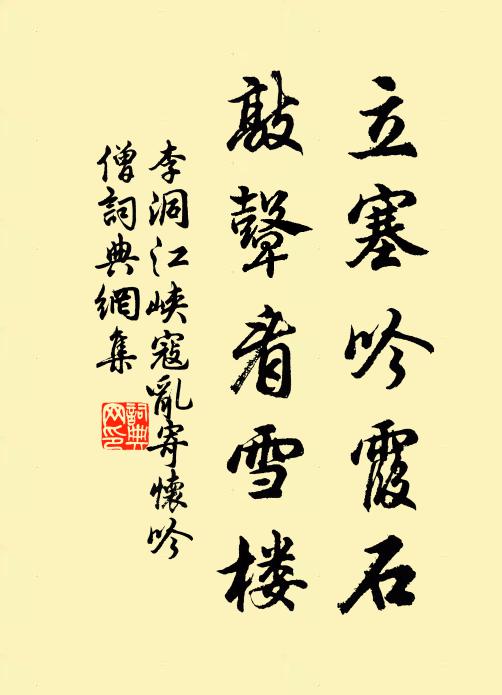 立塞吟霞石
敲鼙看雪楼
李洞江峽寇亂寄懷吟
僧詞典網集
詞典
网印